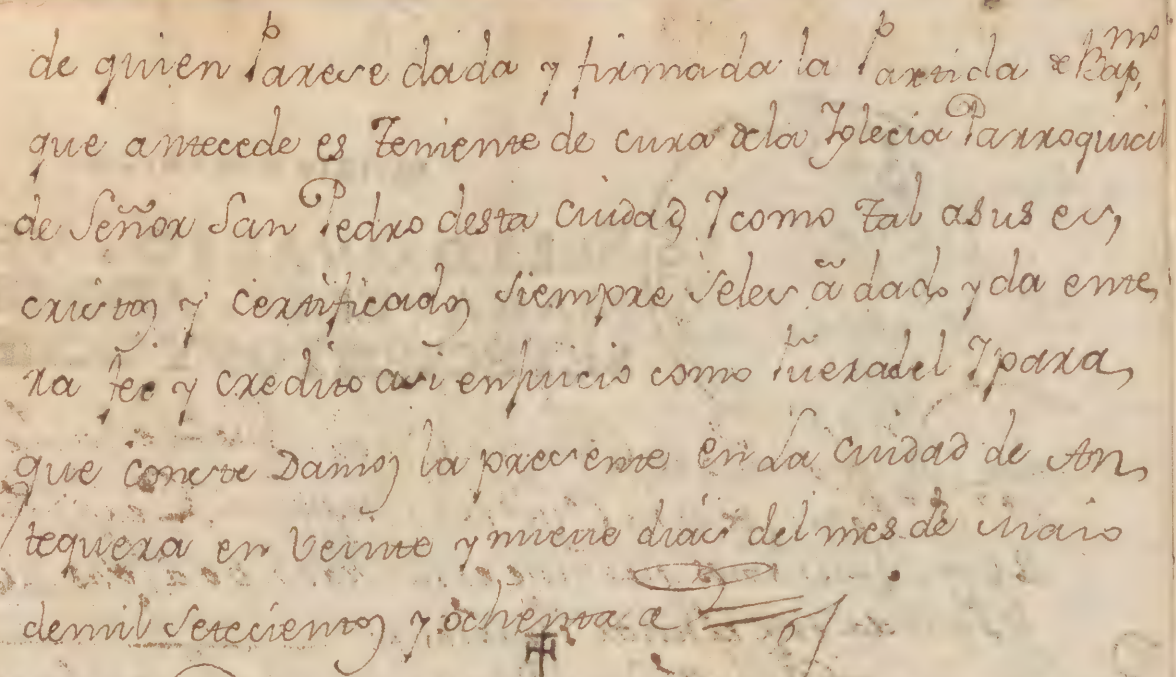 de quien Parece dada y firmada la Partida de Bap,mo
que antecede es Teniente de cura dela Yglecia Parroquial
de Señor San Pedro desta Ciudad Y como tal asus es,
crictos y certificados siempre seles ã dado y da ente,
ra fee y credito asi enjuicio como fueradel Y para,
que conste Damos la presente en La Ciudad de An,
tequera en Veinte y nueve dias del mes de Maio
demil setecientos y ochenta a